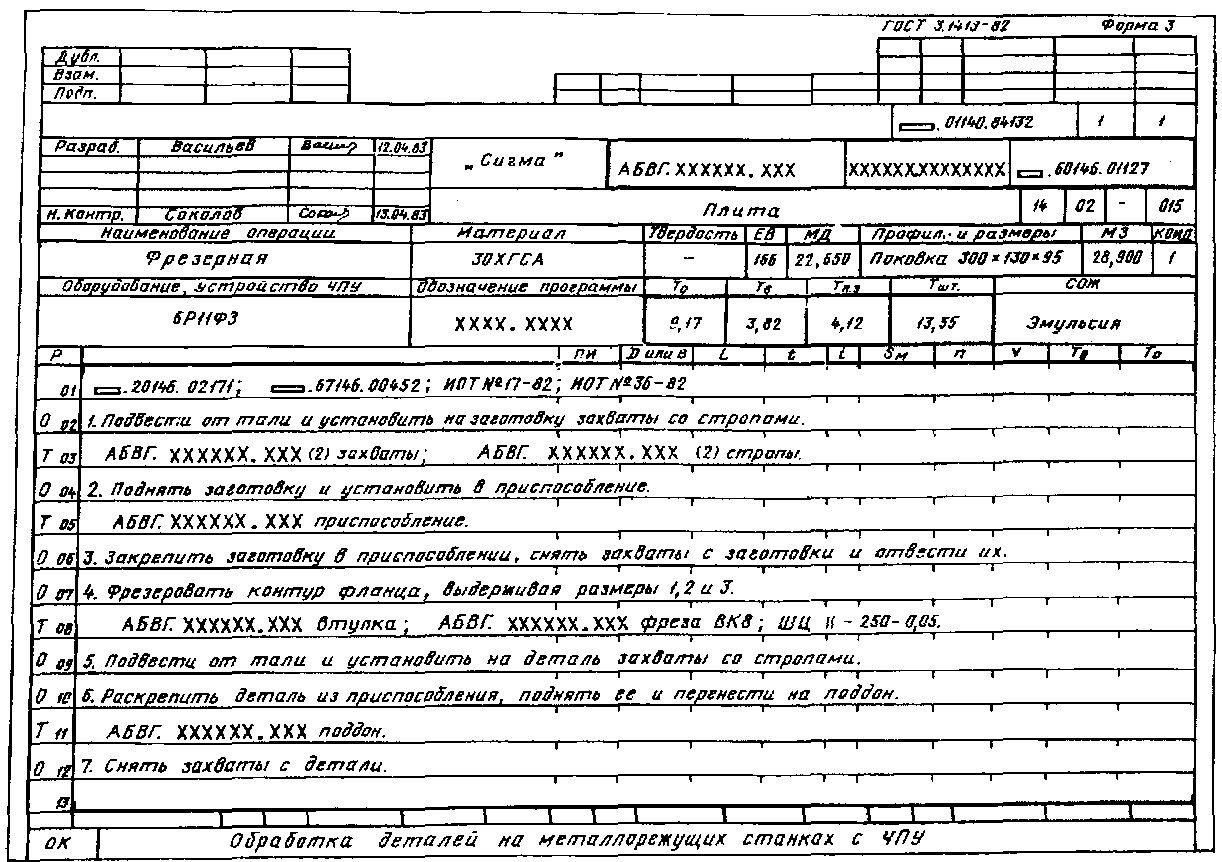 ГОСТ 3.1413-82 Форма 3
Дубл.
Взам.
Подп.
.01140.84132 1 1
Разраб. Васильев 12.04.83
„Сигма” АБВГ.XXXXXX.XXX XXXXXX.XXXXXXXX .60146.01127
Н.контр. Соколов 13.04.83 Плита 14 02 - 015
Наименование операции Материал Твердость ЕВ МД Профил. и размеры МЗ КОИД
Фрезерная 30ХГСА – 166 22,650 Поковка 300×130×95 28,900 1
Оборудование, устройство ЧПУ Обозначение программы То Тв Тп.з Тшт. СОЖ
6Р11Ф3 XXXX.XXXX 9,17 3,82 4,12 13,55 Эмульсия
Р ПИ D или В L t i Sм n V Тв То
01 .20146.02171; .67146.00452; ИОТ №17-82; ИОТ №36-82
О 02 1. Подвести от тали и установить на заготовку захваты со стропами.
Т 03 АБВГ. XXXXXX.XXX (2) захваты; АБВГ. XXXXXX.XXX (2) стропы.
О 04 2. Поднять заготовку и установить в приспособление.
Т 05 АБВГ. XXXXXX.XXX приспособление.
О 06 3. Закрепить заготовку в приспособлении, снять захваты с заготовки и отвести их.
О 07 4. Фрезеровать контур фланца, выдерживая размеры 1,2 и 3.
Т 08 АБВГ. XXXXXX.XXX втулка; АБВГ. XXXXXX.XXX фреза ВК8; ШЦ II – 250 – 0,05.
О 09 5. Подвести от тали и установить на деталь захваты со стропами.
О 10 6. Раскрепить деталь из приспособления, поднять ее и перенести на поддон.
Т 11 АБВГ. XXXXXX.XXX поддон.
О 12 7. Снять захваты с детали.
13
ОК Обработка деталей на металлорежущих станках с ЧПУ